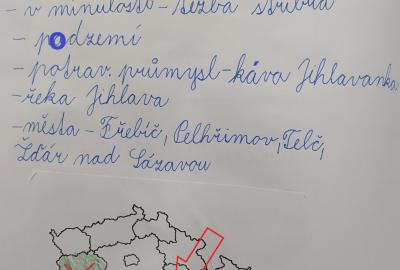 - v minulosti - těžba stříbra
- podzemí
- potrav. průmysl - káva Jihlavanka
- řeka Jihlava
- města - Třebíč, Pelhřimov, Telč,
Žďár nad Sázavou